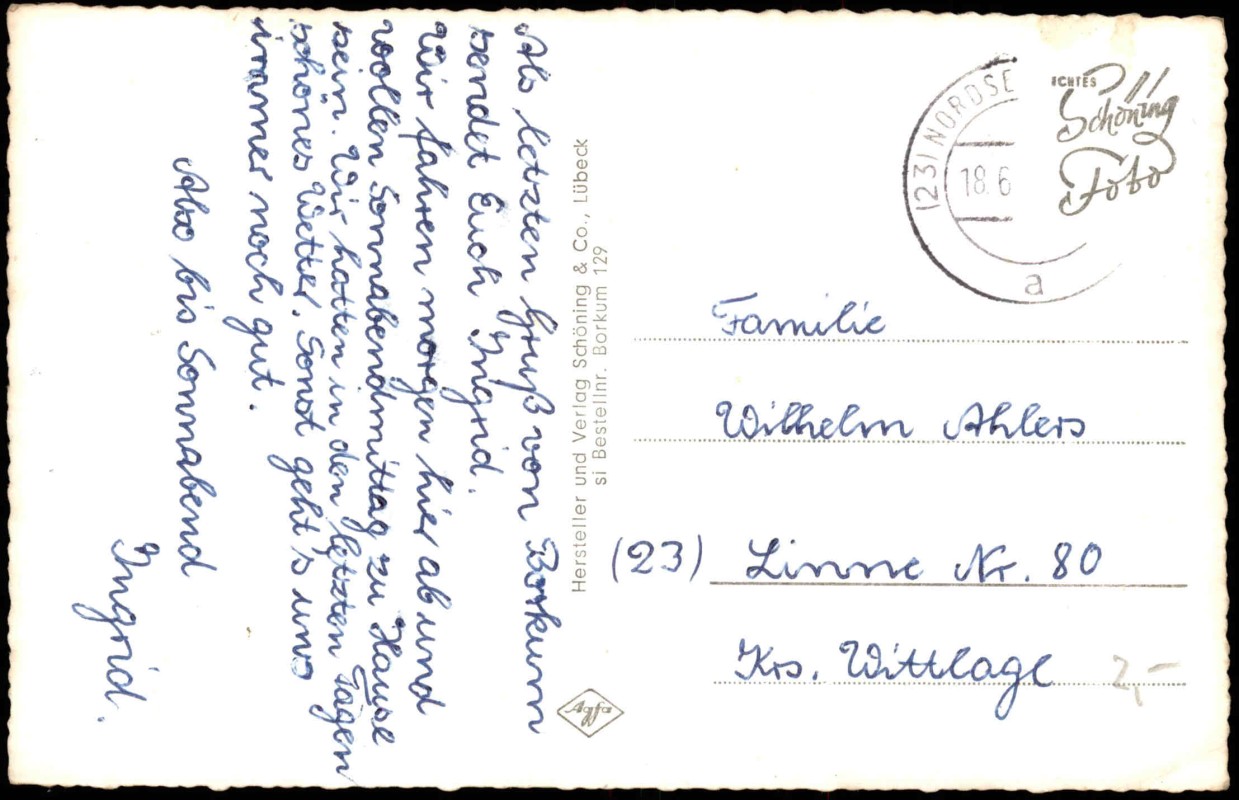 Als letzten Gruß von Borkum
sendet Euch Ingrid.
Wir fahren morgen hier ab und
wollen Sonnabendmittag zu Hause
sein. Wir hatten in den letzten Tagen
schönes Wetter. Sonst geht's uns
immer noch gut.
Also bis Sonnabend
Ingrid.
Hersteller und Verlag Schöning & Co., Lübeck
si Bestellnr. Borkum 129
Agfa
(23) NORDSE
18.6
a
ECHTES
Schöning
Foto
Familie
Wilhelm Ahlers
(23) Linne Nr. 80
Krs. Wittlage
2,-